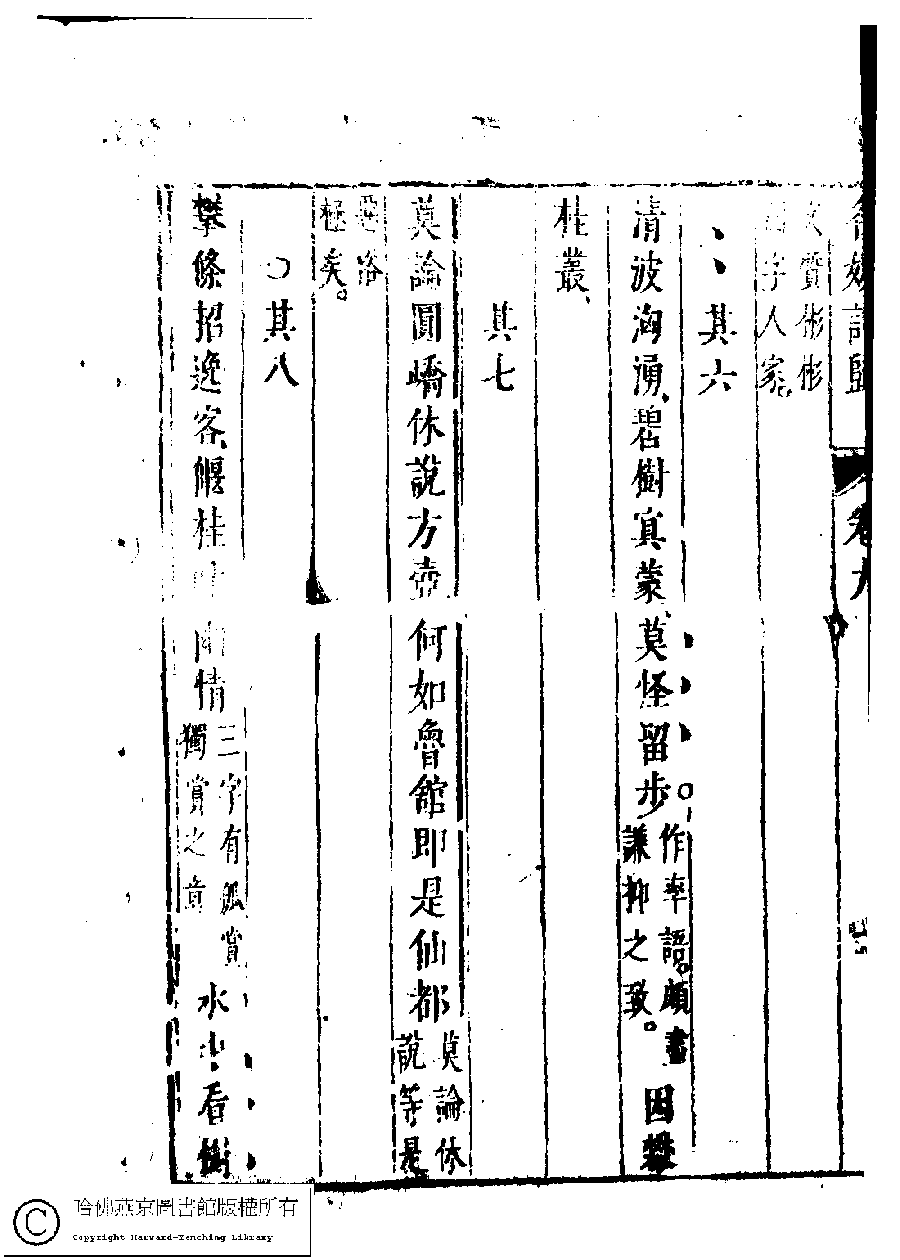 名媛詩歸
卷九
文質彬彬
字人家。
其六
清波洶湧、碧樹冥蒙、莫怪留步。
作率語。頗盡
謙抑之致。
因攀
桂叢、
其七
莫論圓嶠休說方壺何如魯館即是仙都
莫論休
說等是
惡俗
極矣。
○其八
攀條招逸客、偃桂
情
三字有孤賞
獨賞之意
水中看樹
哈佛燕京圖書館版權所有
Copyright Harvard-Yenching Library